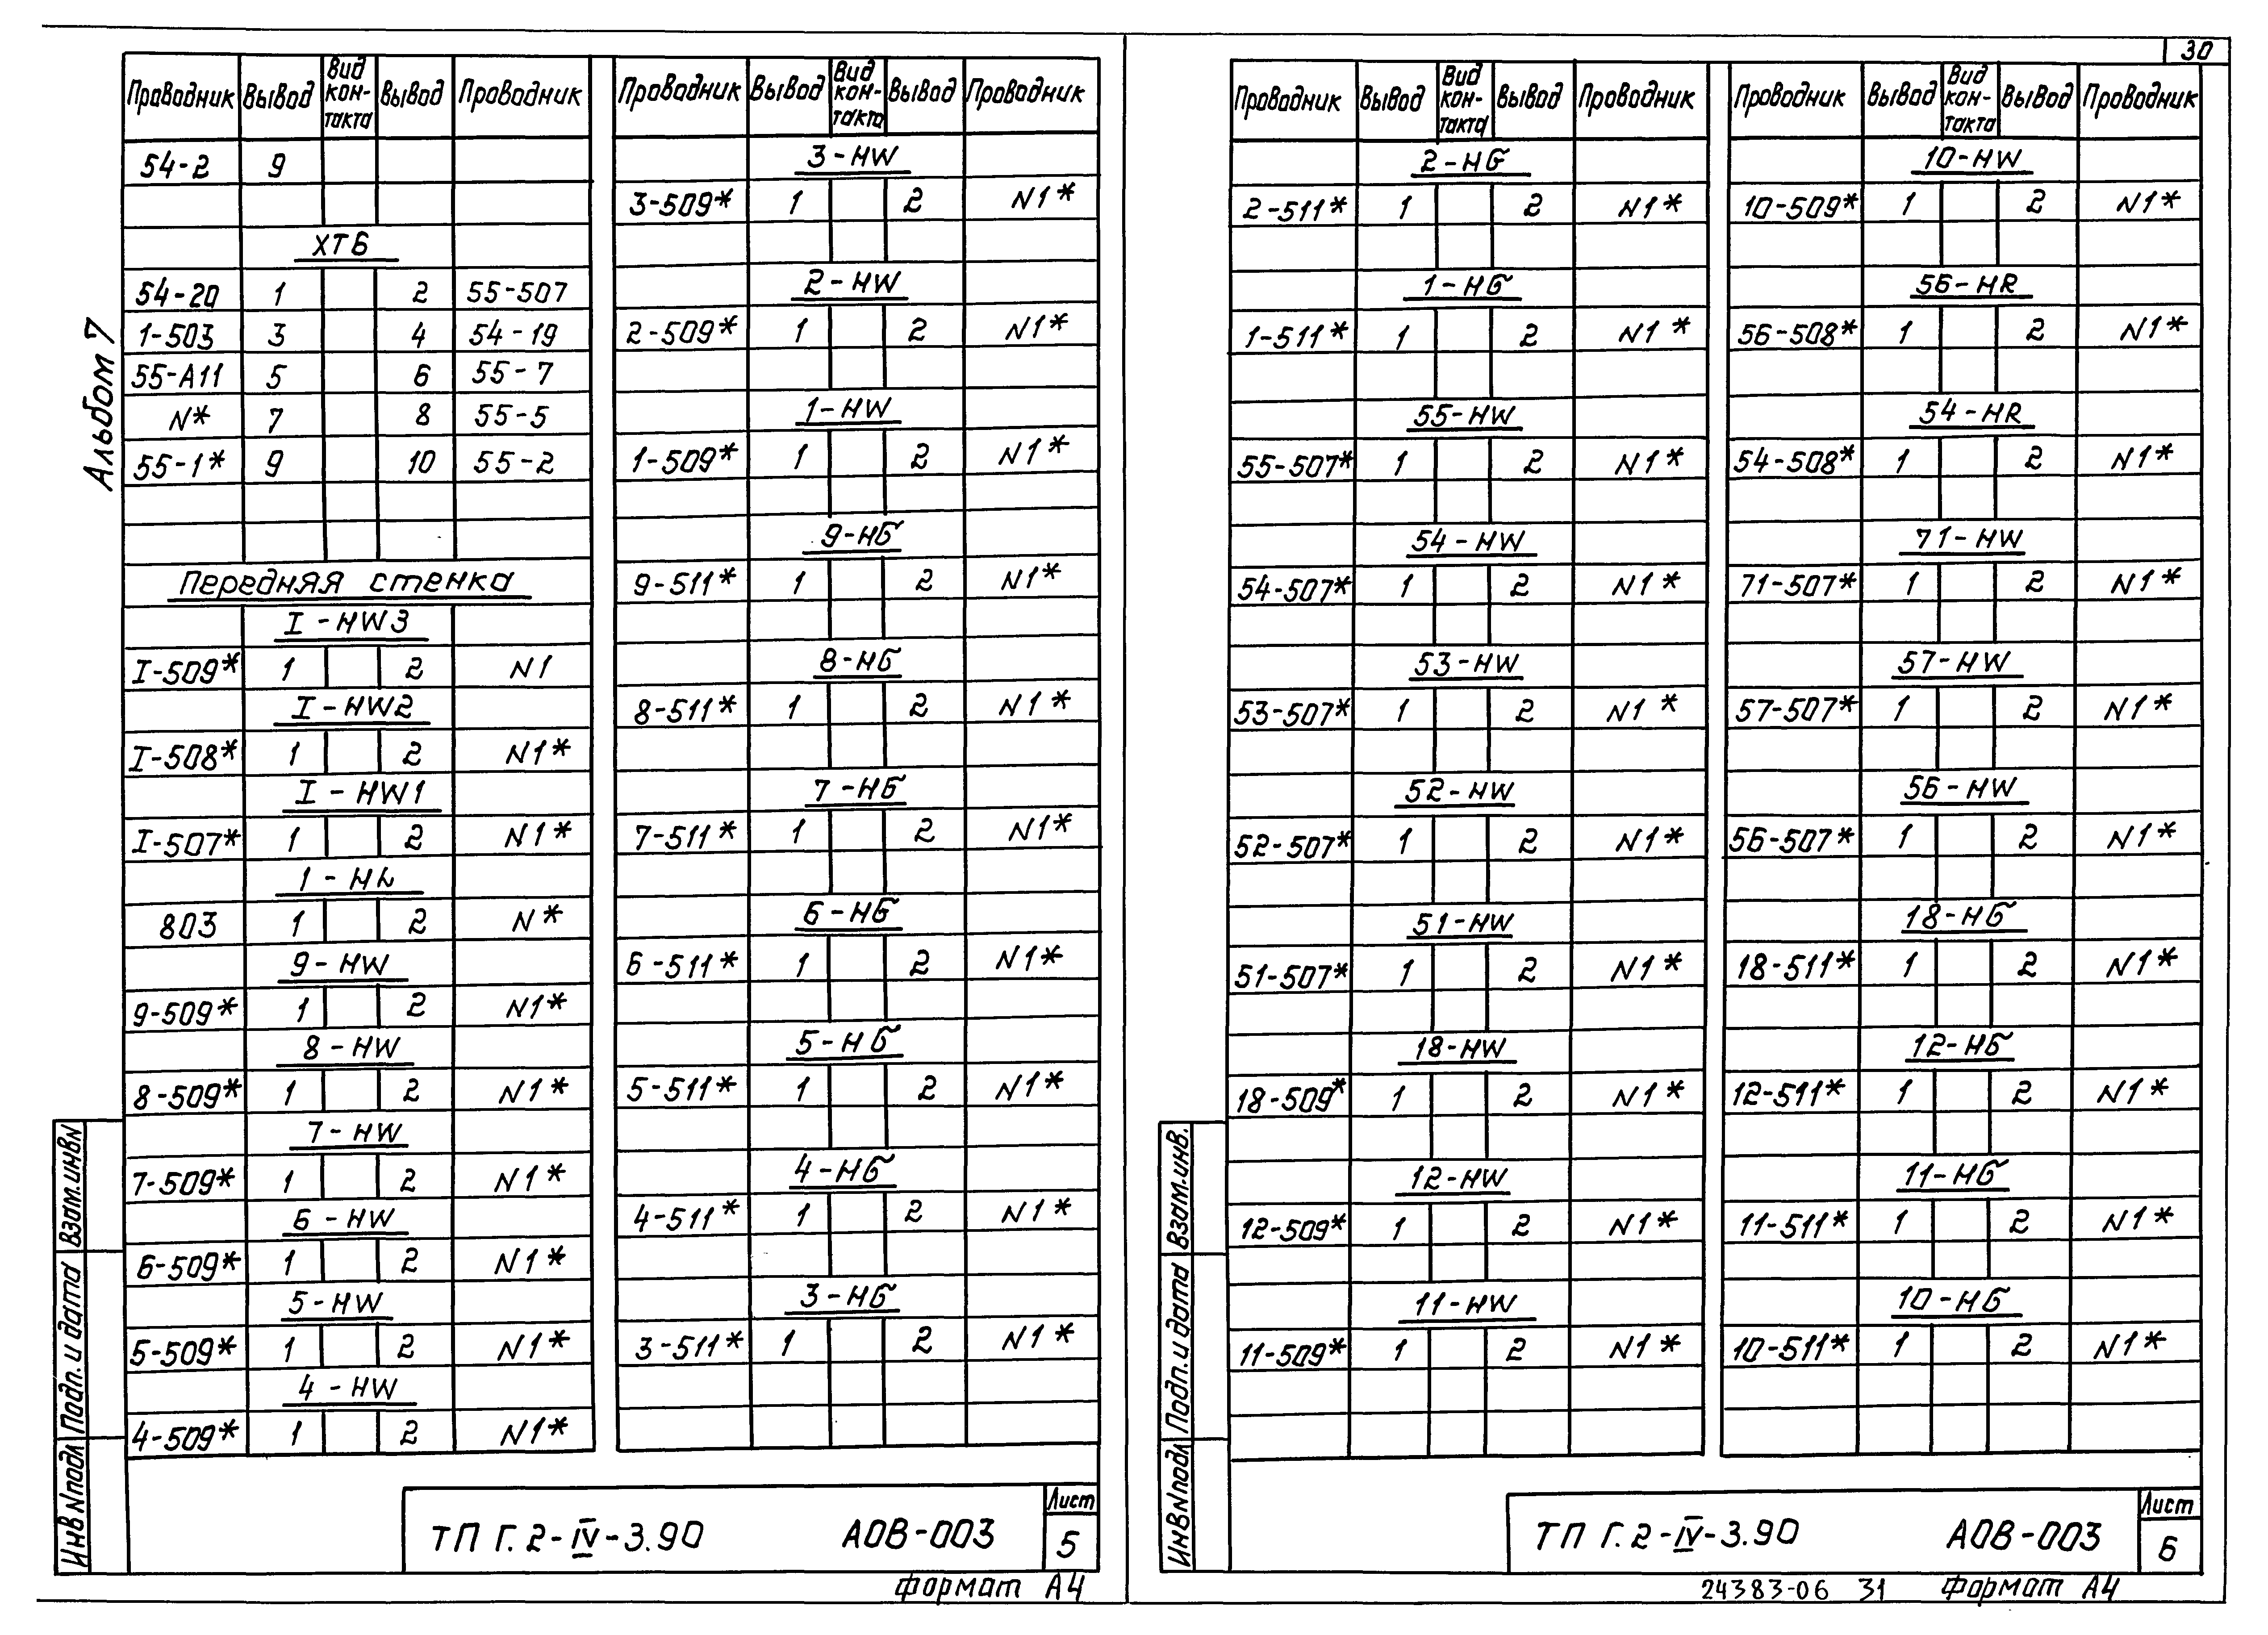 30
Альбом 7
Проводник Вывод Вид кон- такта Вывод Проводник
54-2 9
ХТ6
54-20 1 2 55-507
1-503 3 4 54-19
55-А11 5 6 55-7
N* 7 8 55-5
55-1* 9 10 55-2
Передняя стенка
I-HW3
I-509* 1 2 N1
I-HW2
I-508* 1 2 N1*
I-HW1
I-507* 1 2 N1*
1-HL
803 1 2 N*
9-HW
9-509* 1 2 N1*
8-HW
8-509* 1 2 N1*
7-HW
7-509* 1 2 N1*
6-HW
6-509* 1 2 N1*
5-HW
5-509* 1 2 N1*
4-HW
4-509* 1 2 N1*
Проводник Вывод Вид кон- такта Вывод Проводник
3-HW
3-509* 1 2 N1*
2-HW
2-509* 1 2 N1*
1-HW
1-509* 1 2 N1*
9-HG
9-511* 1 2 N1*
8-HG
8-511* 1 2 N1*
7-HG
7-511* 1 2 N1*
6-HG
6-511* 1 2 N1*
5-HG
5-511* 1 2 N1*
4-HG
4-511* 1 2 N1*
3-HG
3-511* 1 2 N1*
Взам.инвN
Подп. и дата
Инв Nподл
ТП Г.2-IV-3.90 АОВ-003
Лист
5
Формат А4
Проводник Вывод Вид кон- такта Вывод Проводник
2-HG
2-511* 1 2 N1*
1-HG
1-511* 1 2 N1*
55-HW
55-507* 1 2 N1*
54-HW
54-507* 1 2 N1*
53-HW
53-507* 1 2 N1*
52-HW
52-507* 1 2 N1*
51-HW
51-507* 1 2 N1*
18-HW
18-509* 1 2 N1*
12-HW
12-509* 1 2 N1*
11-HW
11-509* 1 2 N1*
Проводник Вывод Вид кон- такта Вывод Проводник
10-HW
10-509* 1 2 N1*
56-HR
56-508* 1 2 N1*
54-HR
54-508* 1 2 N1*
71-HW
71-507* 1 2 N1*
57-HW
57-507* 1 2 N1*
56-HW
56-507* 1 2 N1*
18-HG
18-511* 1 2 N1*
12-HG
12-511* 1 2 N1*
11-HG
11-511* 1 2 N1*
10-HG
10-511* 1 2 N1*
Взам.инв.
Подп. и дата
ИнвNподл
ТП Г.2-IV-3.90 АОВ-003
Лист
6
24383-06 31 Формат А4